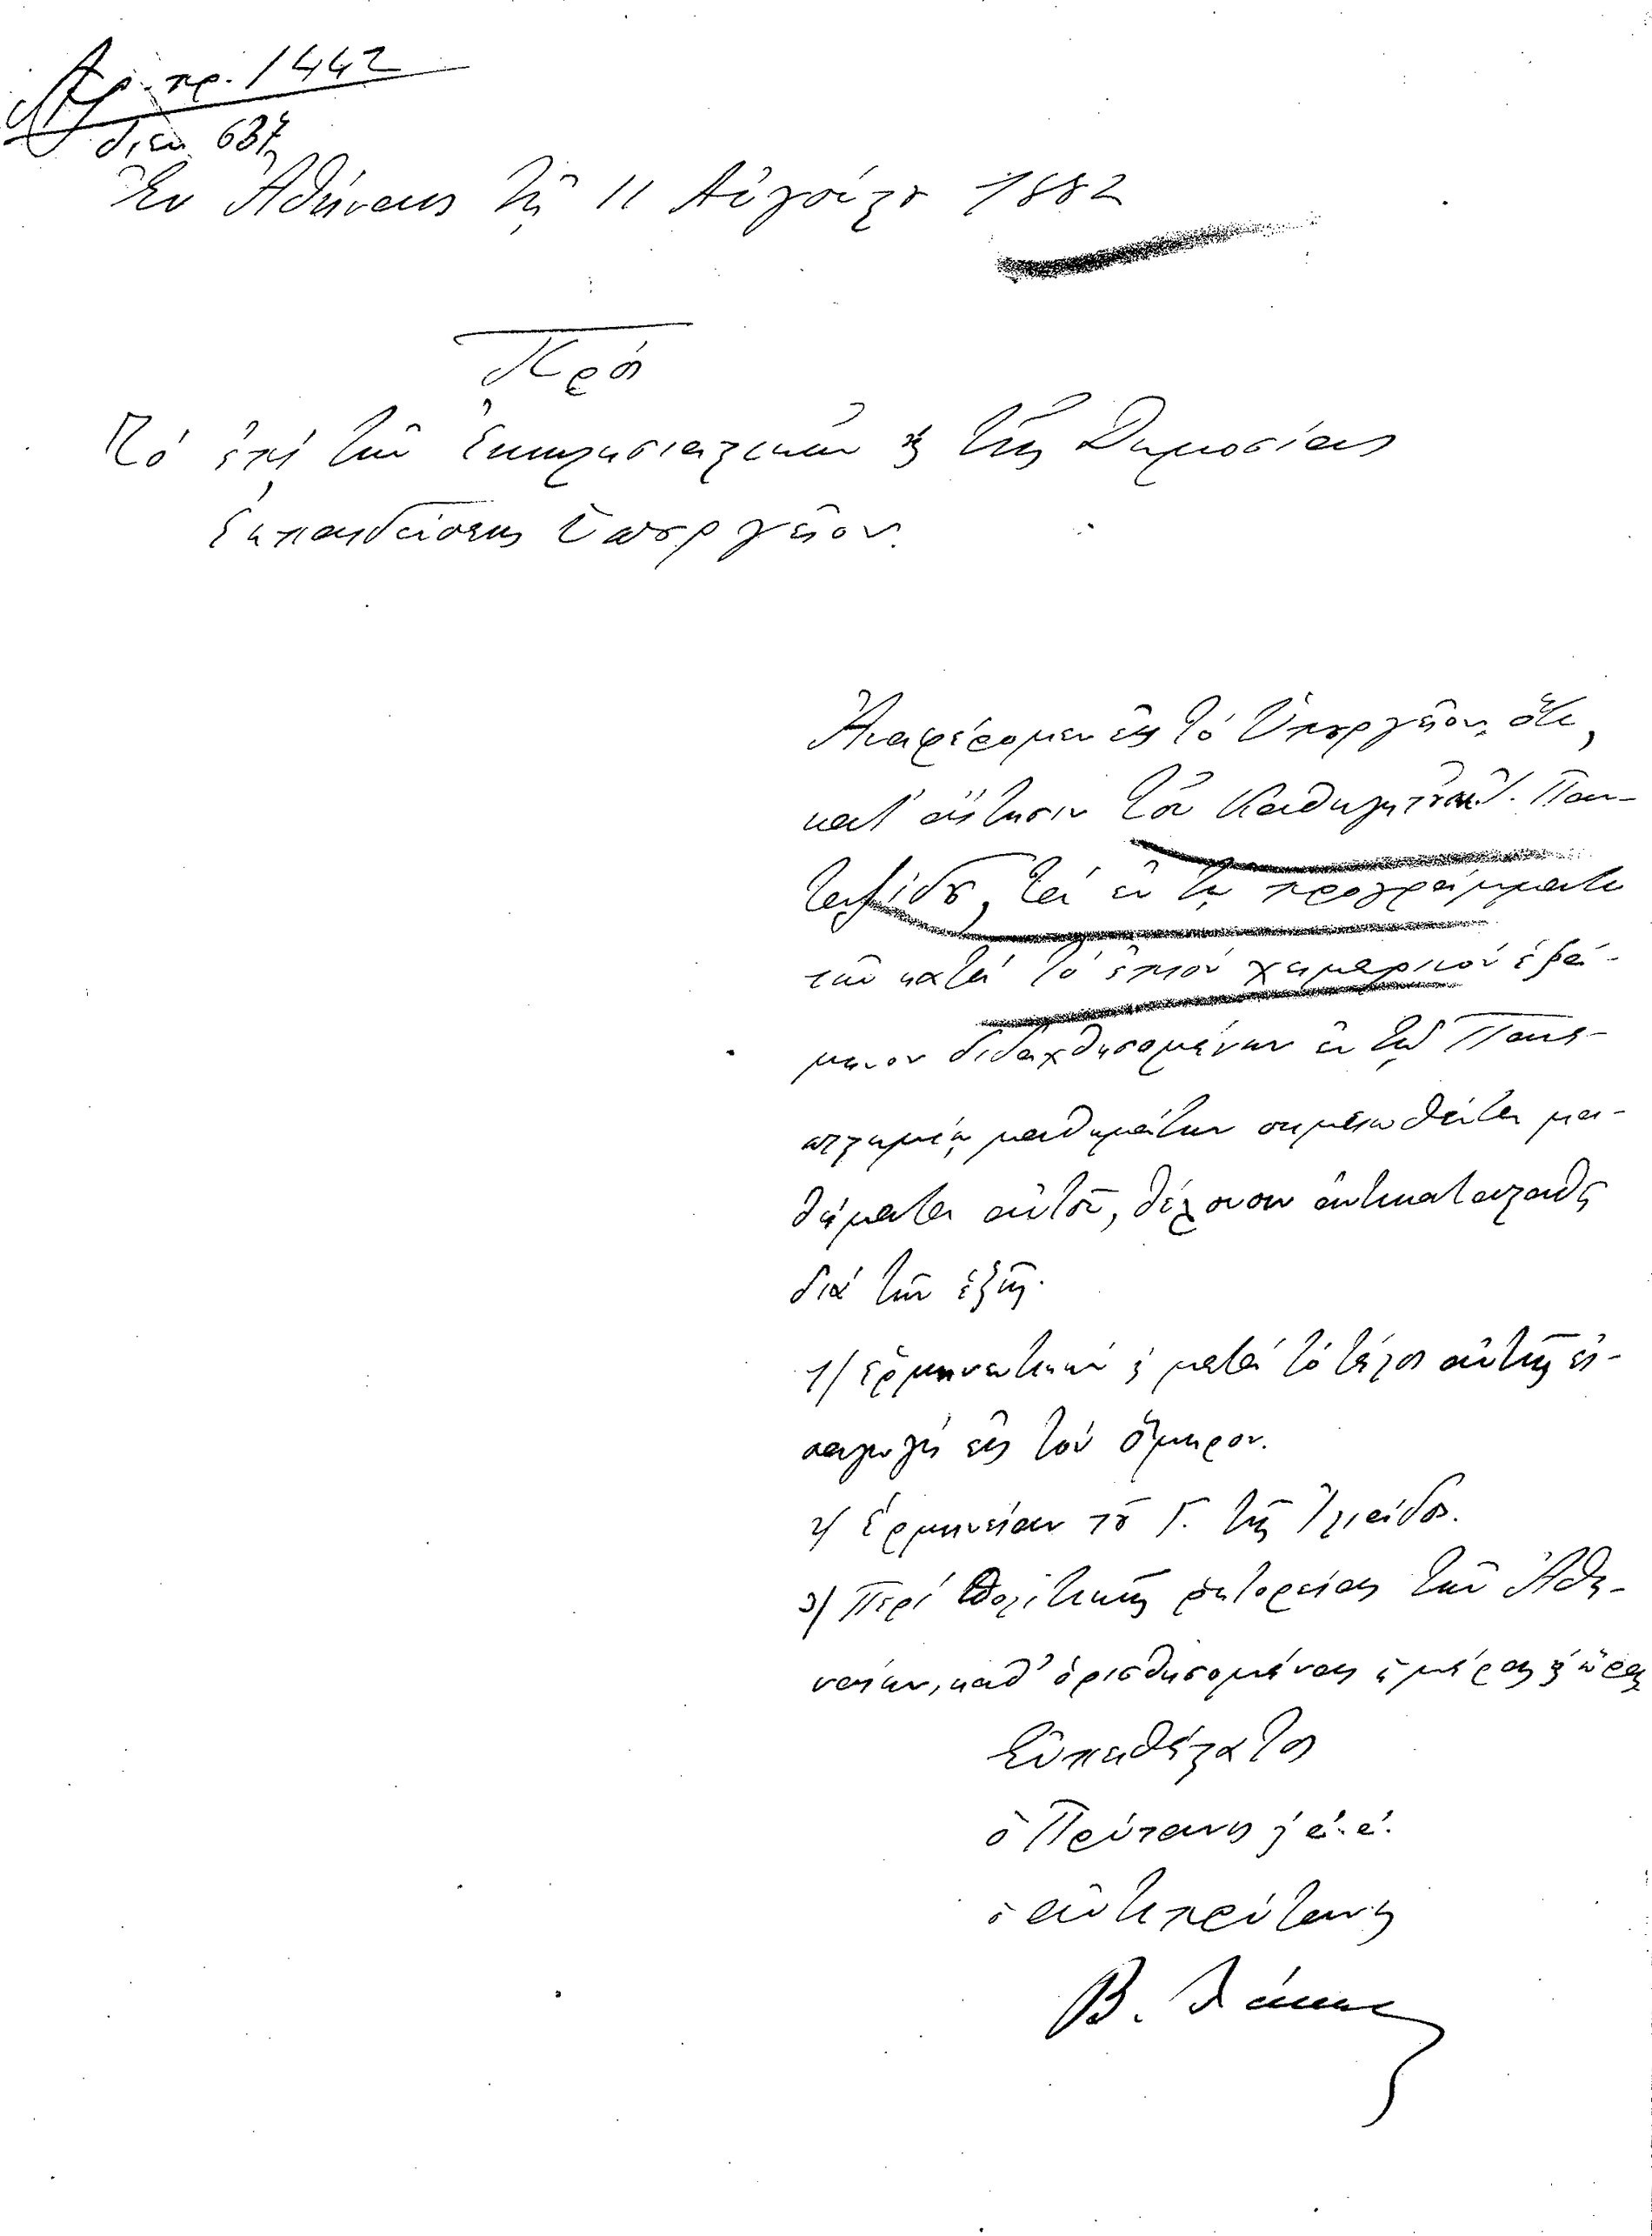 Ἀρ. πρ. 1442
διεκ 637
Ἐν Ἀθήναις τῇ 11 Αὐγούστου 1882
Πρὸς
Τὸ ἐπὶ τῶν Ἐκκλησιαστικῶν κ τῆς Δημοσίας
Ἐκπαιδεύσεως Ὑπουργεῖον.
Ἀναφέρομεν εἰς τὸ Ὑπουργεῖον, ὅτι,
κατ' αἴτησιν τοῦ Καθηγητοῦ κ. Παν-
ταζίδου, τὰ ἐν τῷ προγράμματι
τῶν κατὰ τὸ ἐπιὸν χειμερινὸν ἑξά-
μηνον διδαχθησομένων ἐν τῷ Πανε-
πιστημίῳ μαθημάτων σημειωθέντα μα-
θήματα αὐτοῦ, θέλουσιν ἀντικατασταθῇ
διὰ τῶν ἑξῆς·
1) Ἑρμηνευτικὴν κ μετὰ τὸ τέλος αὐτῆς εἰ-
σαγωγὴν εἰς τὸν Ὅμηρον.
2) Ἑρμηνείαν τοῦ Γ. τῆς Ἰλιάδος.
3) Περὶ πολιτικῆς ῥητορείας τῶν Ἀθη-
ναίων, καθ' ὁρισθησομένας ἡμέρας κ ὥρας
Εὐπειθέστατος
ὁ Πρύτανις κ ἀ. ἀ.
ὁ ἀντιπρύτανις
Β. Λάκων